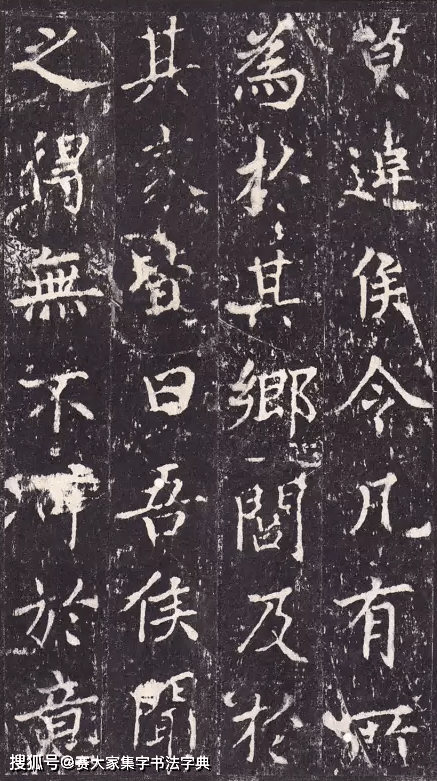 莫違侯令凡有所
為於其鄉閭及於
其家皆曰吾侯聞
之得無不於意
搜狐号@赛大家集字书法字典